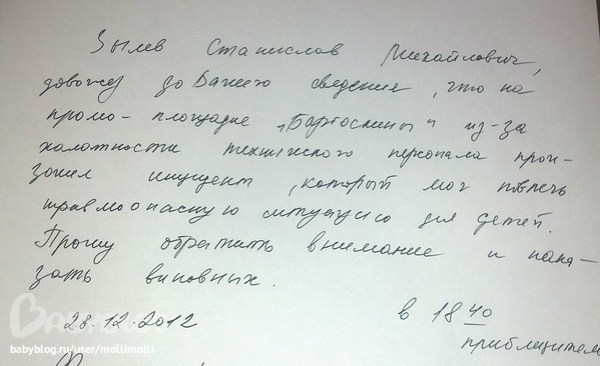 Зылев Станислав Михайлович,
довожу до Вашего сведения, что на
промо-площадке „Барбоскины" из-за
халатности технического персонала прои-
зошел инцидент, который мог повлечь
травмоопасную ситуацию для детей.
Прошу обратить внимание и нака-
зать виновных.
28.12.2012
в 18 40
приблизител
babyblog.ru/user/mollimolli